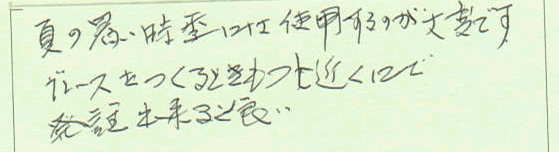 夏の暑い時季には使用するのが大変です
ケースをつくるときもっと近くにで
発註出来ると良い